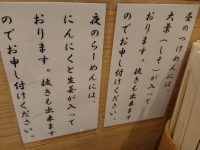 昼のつけめんには、
大葉(しそ)が入って
おります。抜きも出来ます
のでお申し付けください。
夜のらーめんには、
にんにくと生姜が入って
おります。抜きも出来ます
のでお申し付けください。